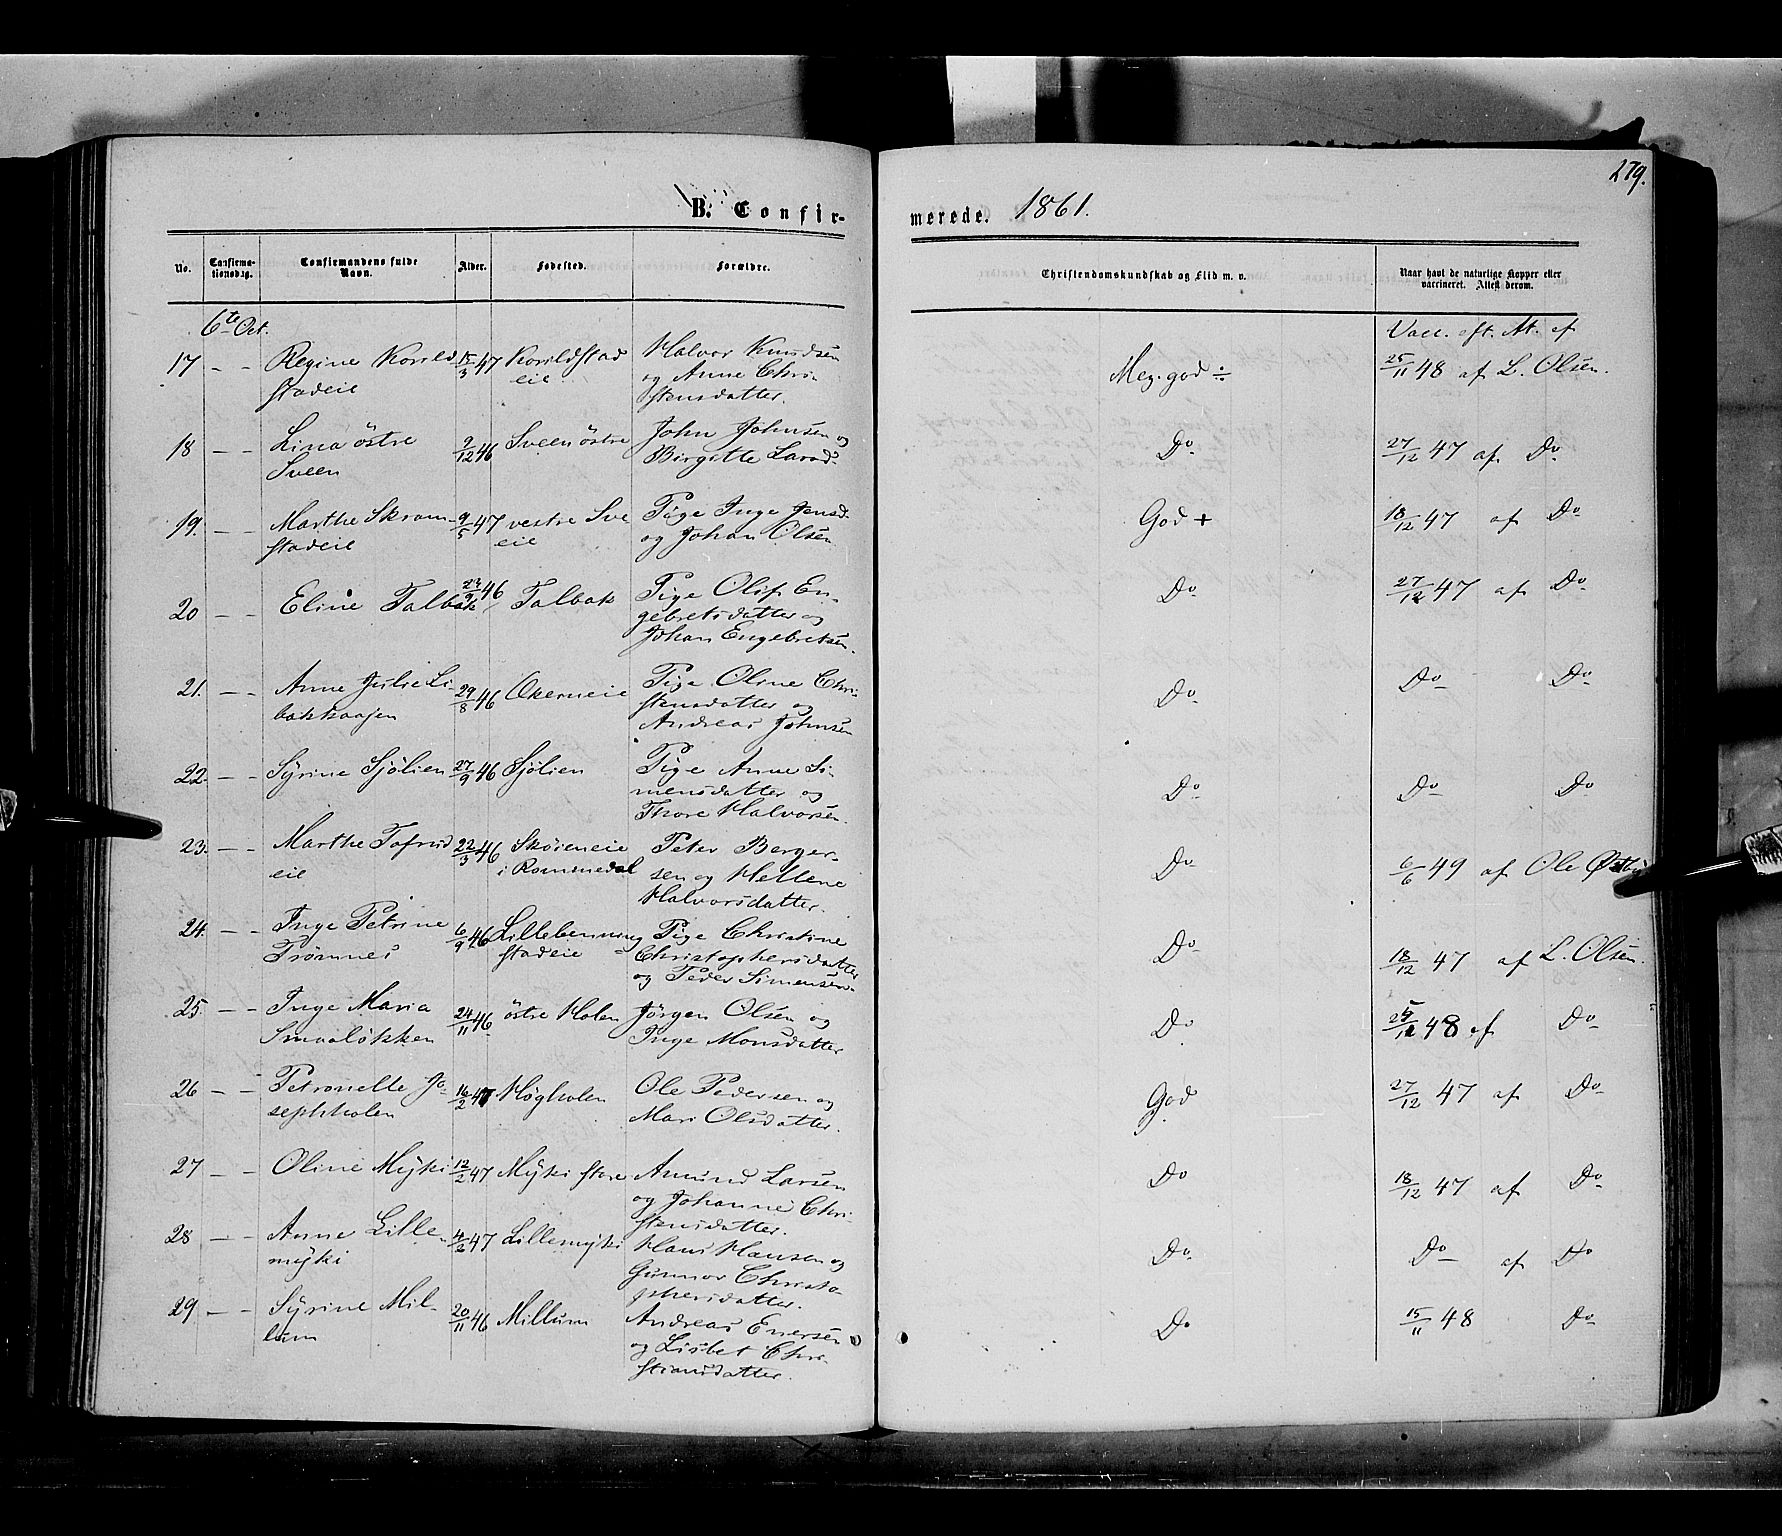 279.
B. Confir-
merede. 1861.
No.
Confirma-
tionsdag.
Confirmandens fulde
Navn.
Alder.
Fødested.
Forældre.
Christendomskundskab og Flid m. v.
Naar havt de naturlige Kopper eller
vaccineret. Attest derom.
6te Oct.
Vacc. eft. At. af
17 — — Regine Korild 15/3 47 Korildstad Halvor Knudsen Meg. god ÷ 25/11 48 af L. Olsen.
stadeie eie og Anne Chri-
stensdatter.
18 — — Lina östre 9/12 46 Sveen östre John Johnsen og Do 27/12 47 af Do
Sveen Birgitte Larsd-
19. — — Marthe Skram- 9/5 47 vestre Sve Pige Inge Jensd. God + 18/12 47 af Do
stadeie eie og Johan Olsen
20 — — Eline Talbak 23/9 46 Talbak Pige Olif En- Do 27/12 47 af Do
gebretsdatter og
Johan Engebretsen.
21. — — Anne Julie Li- 29/8 46 Okerneie Pige Oline Chri- Do Do Do
bakhaajen stensdatter og
Andreas Johnsen
22. — — Syrine Sjölien 27/9 46 Sjölien Pige Anne Si- Do Do Do
mensdatter og
Thore Halvorsen.
23. — — Marthe Tofsrud 22/3 46 Sköieneie Peter Berger- Do 6/6 49 af Ole Østby
eie i Rommedal sen og Hellene
Halvorsdatter.
24. — — Inge Petrine 6/9 46 Lillebenning Pige Christine Do 18/12 47 af L. Olsen.
Trömnes stadeie Christophersdatter
og Peder Simensen.
25. — — Inge Maria 24/11 46 östre Holen Jörgen Olsen og Do 25/11 48 af Do
Smaalökken Inge Monsdatter
26 — — Petronelle Jo- 16/2 47 Högholen Ole Pedersen og God 27/12 47 af Do
sephholen Mari Olsdatter.
27 — — Oline Myki 12/2 47 Myki store Amund Larsen Do 18/12 47 af Do
og Johanne Chri-
stensdatter.
28 — — Anne Lille- 4/2 47 Lillemyki Hans Hansen og Do Do af Do
myki Gunnor Christo-
phersdatter.
29 — — Syrine Mil- 20/11 46 Millum Andreas Enersen Do 15/11 48 Do
lum og Lisbet Chri-
stiansdatter.